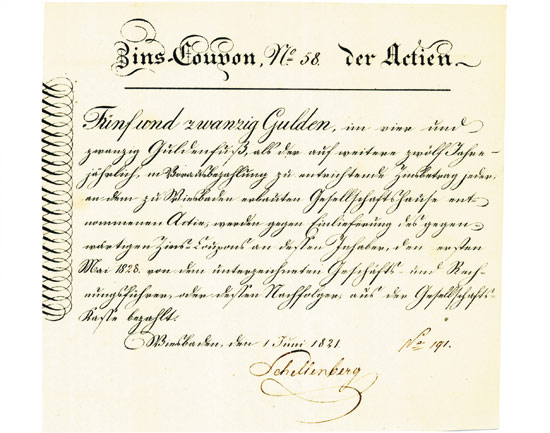 Zins-Coupon, No 58. der Actien.
Fünf und zwanzig Gulden, im vier und
zwanzig Guldenfuß, als der auf weitere zwölf Jahre
jährlich, in Vorausbezahlung zu entrichtende Zinsbetrag jeder,
an dem zu Wiesbaden erbauten Gesellschaftshause ent
nommenen Actie, werden gegen Einlieferung des gegen
wärtigen Zins-Coupons an dessen Inhaber, den ersten
Mai 1828. von dem unterzeichneten Geschäfts- und Rech-
nungsführer, oder dessen Nachfolger, aus der Gesellschafts-
Kasse bezahlt.
Wiesbaden, den 1 Juni 1821. No 191.
Schellenberg